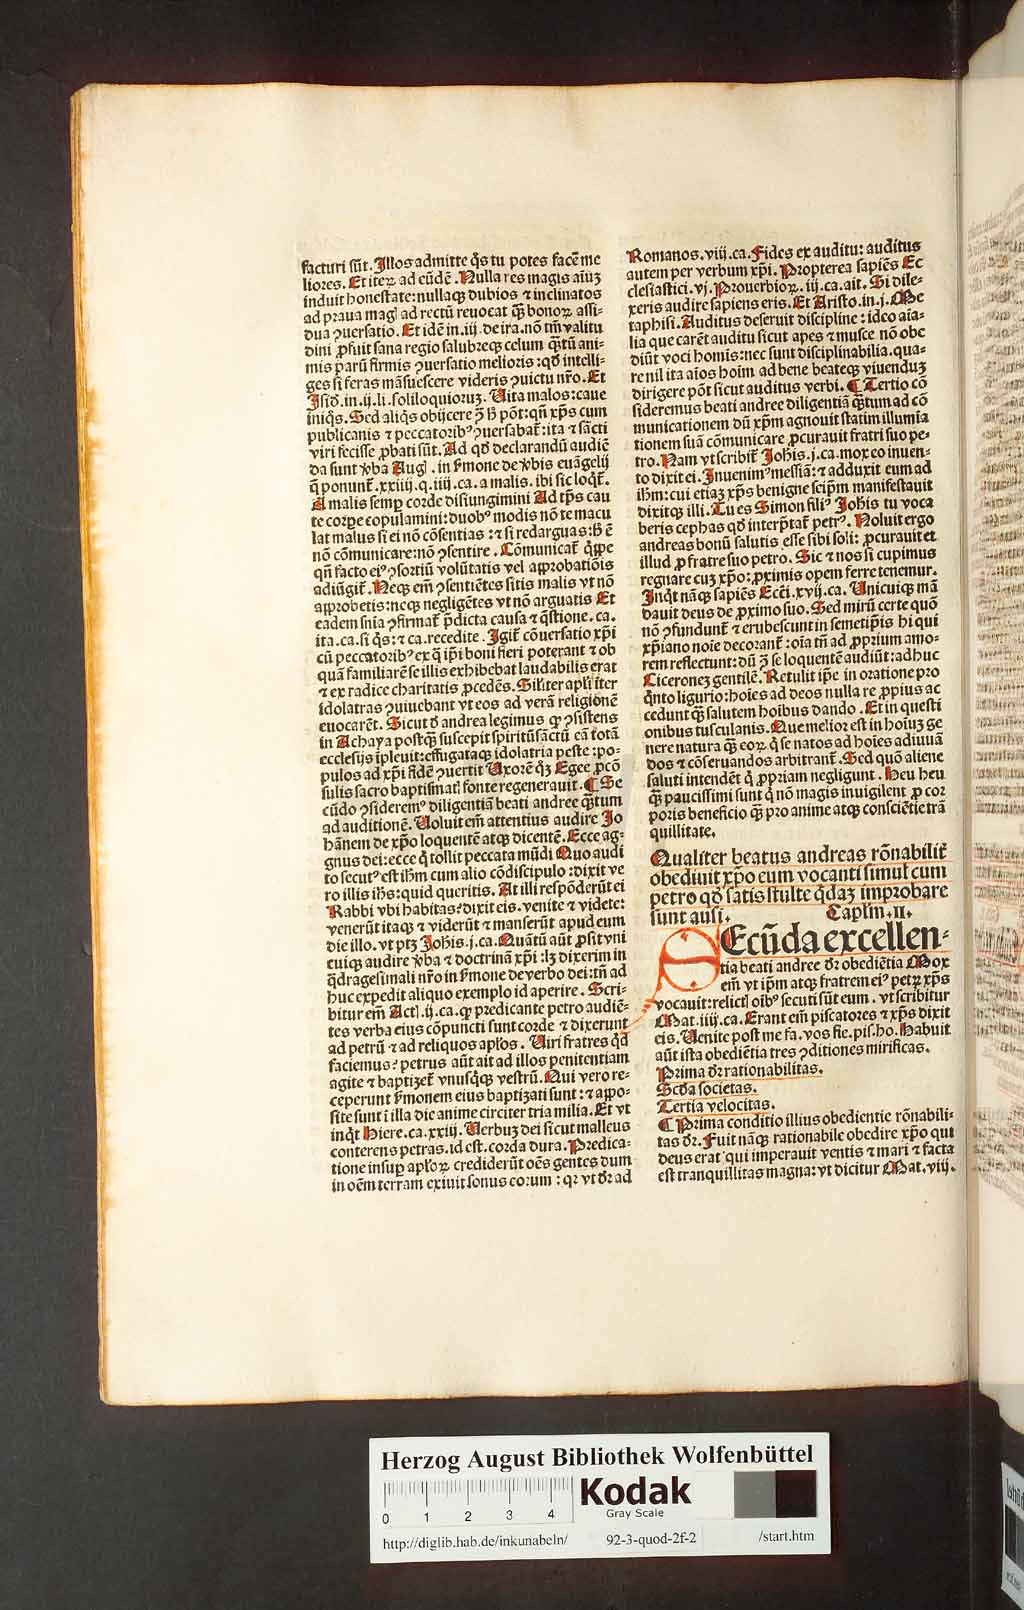 facturi sũt. Illos admitte q̃s tu potes facẽ me
liores. Et iterꝝ ad eũdẽ. Nulla res magis aĩuꝫ
induit honestate: nullaqꝫ dubios ⁊ inclinatos
ad praua magꝭ ad rectũ reuocat qꝫ̃ bonoꝝ assi-
dua ꝯuersatio. Et idẽ in .iij. de ira. nõ tm̃ valitu
dini ꝓfuit sana regio salubreqꝫ celum qꝫ̃tũ ani-
mis parũ firmis ꝯuersatio melioris: qđ intelli-
ges si feras mãsuescere videris ꝯuictu nr̃o. Et
Isiđ. in .ij. li. soliloquioruꝫ. Uita malos: caue
iniq̃s. Sed aliq̃s obijcere ꝫ̃ h̃ põt: qñ xp̃s cum
publicanis ⁊ peccatoribꝰ ꝯuersabat̃: ita ⁊ sãcti
viri fecisse ꝓbati sũt. Ad qđ declarandũ audiẽ
da sunt v̾ba Augꝭ. in s̾mone de v̾bis euãgelij
q̃ ponunt̃ .xxiij. q. iiij. ca. a malis. ibi sic loqt̃.
A malis semꝑ corde disiungimini Ad tp̃s cau
te corpe copulamini: duobꝰ modis nõ te macu
lat malus si ei nõ cõsentias: ⁊ si redarguas: h̃ ẽ
nõ cõmunicare: nõ ꝯsentire. Cõmunicat̃ q̃ppe
qñ facto eiꝰ ꝯsortiũ volũtatis vel aꝓbatiõis
adiũgit̃. Necꝫ em̃ ꝯsentiẽtes sitis malis vt nõ
aꝓbetis: necꝫ negligẽtes vt nõ arguatis Et
eadem snĩa ꝯfirmat̃ p̃dicta causa ⁊ q̃stione. ca.
ita. ca. si q̃s: ⁊ ca. recedite. Igit̃ cõuersatio xp̃i
cũ peccatoribꝰ ex q̃ ip̃i boni fieri poterant ⁊ ob
quã familiarẽ se illis exhibebat laudabilis erat
⁊ ex radice charitatis ꝓcedẽs. Sil̃iter apl̃i iter
idolatras ꝯuiuebant vt eos ad verã religionẽ
euocarẽt. Sicut đ andrea legimus qꝫ ꝯsistens
in Achaya postqꝫ̃ suscepit spiritũ sãctũ eã totã
ecclesijs ĩpleuit: effugataqꝫ idolatria peste: po-
pulos ad xp̃i fidẽ ꝯuertit Uxorẽ q̃ꝫ Egee ꝓcõ
sulis sacro baptismatꝭ fonte regenerauit. ¶ Se
cũdo ꝯsideremꝰ diligentiã beati andree qꝫ̃tum
ad auditionẽ. Uoluit em̃ attentius audire Jo
hãnem de xp̃o loquentẽ atqꝫ dicentẽ. Ecce ag-
gnus dei: ecce q̃ tollit peccata mũdi Quo audi
to secutꝰ est ihm̃ cum alio cõdiscipulo: dixit ve
ro illis ihs̃: quid queritis. At illi respõderũt ei
Rabbi vbi habitas? dixit eis. venite ⁊ videte:
venerũt itaqꝫ ⁊ viderũt ⁊ manserũt apud eum
die illo. vt ptꝫ Johis. j. ca. Quãtũ aũt ꝓsit vni
cuiqꝫ audire v̾ba ⁊ doctrinã xp̃i: lꝫ dixerim in
q̃dragesimali nr̃o in s̾mone de verbo dei: tñ ad
huc expedit aliquo exemplo id aperire. Scri-
bitur em̃ Actꝭ. ij. ca. qꝫ predicante petro audiẽ-
tes verba eius cõpuncti sunt corde ⁊ dixerunt
ad petrũ ⁊ ad reliquos apl̃os. Uiri fratres q̃d
faciemus? petrus aũt ait ad illos penitentiam
agite ⁊ baptizet̃ vnusq̃qꝫ vestrũ. Qui vero re-
ceperunt s̾monem eius baptizati sunt: ⁊ aꝓpo-
site sunt ĩ illa die anime circiter tria milia. Et vt
inq̃t Hiere. ca. xxiij. Uerbuꝫ dei sicut malleus
conterens petras. id est. corda dura. Predica-
tione insuꝑ apl̃oꝝ crediderũt oẽs gentes dum
in oẽm terram exiuit sonus eorum: qꝛ vt đr ad
Romanos. viij. ca. Fides ex auditu: auditus
autem per verbum xp̃i. Propterea sapiẽs Ec
clesiastici. vj. Prouerbioꝝ. iij. ca. ait. Si dile-
xeris audire sapiens eris. Et Aristo. in .j. Me
taphisi. Auditus deseruit discipline: ideo aĩa-
lia que carẽt auditu sicut apes ⁊ musce nõ obe
diũt voci homis: nec sunt disciplinabilia. qua-
re nil ita aĩos hoim ad bene beateqꝫ viuenduꝫ
dirigere põt sicut auditus verbi. ¶ Tertio cõ
sideremus beati andree diligentiã qꝫ̃tum ad cõ
municationem dũ xp̃m agnouit statim illumia
tionem suã cõmunicare ꝓcurauit fratri suo pe-
tro. Nam vt scribit̃ Johis. j. ca. mox eo inuen-
to dixit ei. Inuenimꝰ messiã: ⁊ adduxit eum ad
ihm̃: cui etiaꝫ xp̃s benigne seip̃m manifestauit
dixitqꝫ illi. Tu es Simon filiꝰ Johis tu voca
beris cephas qđ interp̃tat̃ petrꝰ. Noluit ergo
andreas bonũ salutis esse sibi soli: ꝓcurauit et
illud ꝓ fratre suo petro. Sic ⁊ nos si cupimus
regnare cuꝫ xp̃o: ꝓximis opem ferre tenemur.
Inq̃t nãqꝫ sapiẽs Ecci̇̃. xvij. ca. Unicuiqꝫ mã
dauit deus de ꝓximo suo. Sed mirũ certe quõ
nõ ꝯfundunt̃ ⁊ erubescunt in semetip̃is hi qui
xp̃iano noĩe decorant̃: oĩa tñ ad ꝓprium amo-
rem reflectunt: dũ ꝫ̃ se loquentẽ audiũt: adhuc
Ciceroneꝫ gentilẽ. Retulit ip̃e in oratione pro
q̃nto ligurio: hoĩes ad deos nulla re ꝓpius ac
cedunt qꝫ̃ salutem hoĩbus dando. Et in questi
onibus tusculanis. Que melior est in hoĩuꝫ ge
nere natura qꝫ̃ eoꝝ q̃ se natos ad hoĩes adiuuã
dos ⁊ cõseruandos arbitrant̃. Sed quõ aliene
saluti intendẽt q̃ ꝓpriam negligunt. Heu heu
qꝫ̃ paucissimi sunt q̃ nõ magis inuigilent ꝓ cor
poris beneficio qꝫ̃ pro anime atqꝫ consciẽtie trã
quillitate.
Qualiter beatus andreas rõnabilit̃
obediuit xp̃o eum vocanti simul cum
petro qđ satis stulte q̃daꝫ improbare
sunt ausi. Caplm̃ .II.
SEcũda excellen-
tia beati andree đr obediẽtia Mox
em̃ vt ip̃m atqꝫ fratrem eiꝰ petꝝ xp̃s
vocauit: relictꝭ oĩbꝰ secuti sũt eum. vt scribitur
Mat. iiij. ca. Erant em̃ piscatores ⁊ xp̃s dixit
eis. Uenite post me fa. vos fie. pis. ho. Habuit
aũt ista obediẽtia tres ꝯditiones mirificas.
Prima đr rationabilitas.
Scđa societas.
Tertia velocitas.
¶ Prima conditio illius obedientie rõnabili-
tas đr. Fuit nãqꝫ rationabile obedire xp̃o qui
deus erat qui imperauit ventis ⁊ mari ⁊ facta
est tranquillitas magna: vt dicitur Mat. viij.
Herzog August Bibliothek Wolfenbüttel
0 1 2 3 4
Kodak
Gray Scale
http://diglib.hab.de/inkunabeln/ 92-3-quod-2f-2 /start.htm